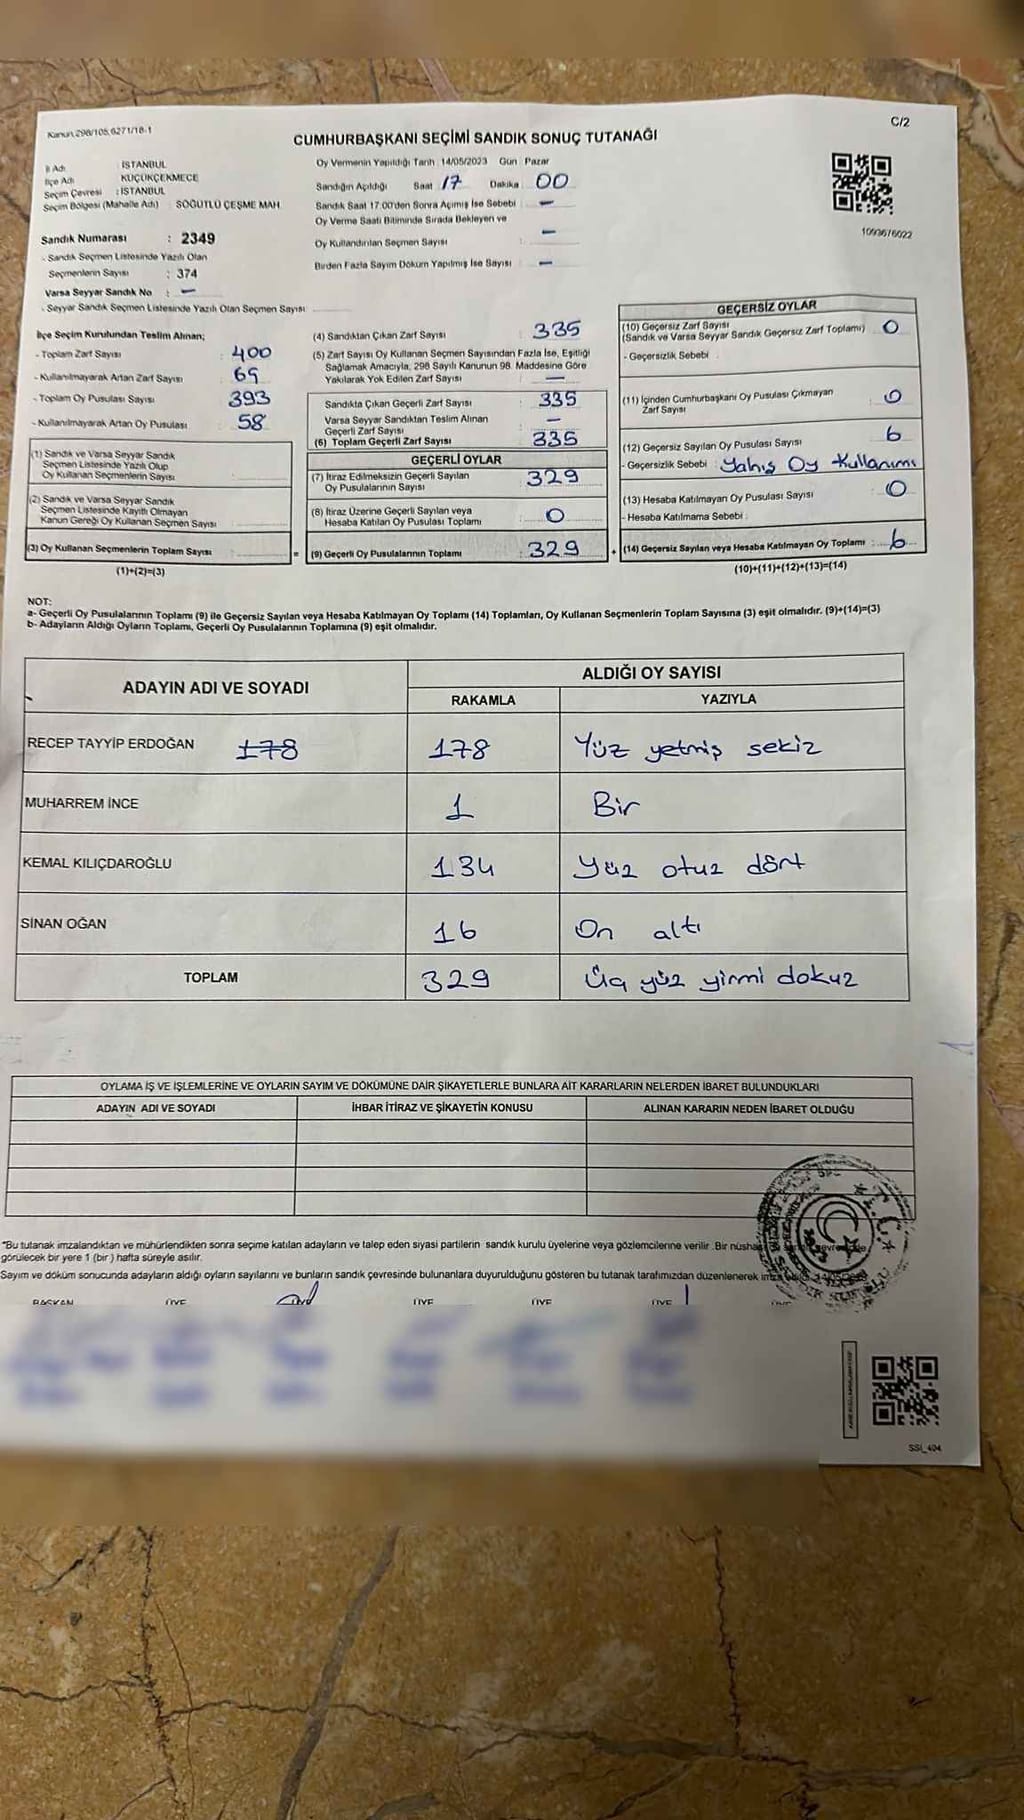 Kanun,298/105,6271/18-1
C/2
CUMHURBAŞKANI SEÇİMİ SANDIK SONUÇ TUTANAĞI
İl Adı : İSTANBUL
İlçe Adı KÜÇÜKÇEKMECE
Seçim Çevresi : İSTANBUL
Seçim Bölgesi (Mahalle Adı) SÖĞÜTLÜ ÇEŞME MAH.
Sandık Numarası : 2349
- Sandık Seçmen Listesinde Yazılı Olan
Seçmenlerin Sayısı : 374
Varsa Seyyar Sandık No : -
- Seyyar Sandık Seçmen Listesinde Yazılı Olan Seçmen Sayısı
Oy Vermenin Yapıldığı Tarih : 14/05/2023 Gün : Pazar
Sandığın Açıldığı Saat 17 Dakika 00
Sandık Saat 17.00'den Sonra Açılmış İse Sebebi : -
Oy Verme Saati Bitiminde Sırada Bekleyen ve
Oy Kullandırılan Seçmen Sayısı : -
Birden Fazla Sayım Döküm Yapılmış İse Sayısı : -
1093676022
İlçe Seçim Kurulundan Teslim Alınan;
- Toplam Zarf Sayısı : 400
- Kullanılmayarak Artan Zarf Sayısı : 69
- Toplam Oy Pusulası Sayısı : 393
- Kullanılmayarak Artan Oy Pusulası : 58
(1) Sandık ve Varsa Seyyar Sandık
Seçmen Listesinde Yazılı Olup
Oy Kullanan Seçmenlerin Sayısı
(2) Sandık ve Varsa Seyyar Sandık
Seçmen Listesinde Kayıtlı Olmayan
Kanun Gereği Oy Kullanan Seçmen Sayısı
(3) Oy Kullanan Seçmenlerin Toplam Sayısı : =
(1)+(2)=(3)
(4) Sandıktan Çıkan Zarf Sayısı : 335
(5) Zarf Sayısı Oy Kullanan Seçmen Sayısından Fazla İse, Eşitliği
Sağlamak Amacıyla, 298 Sayılı Kanunun 98. Maddesine Göre
Yakılarak Yok Edilen Zarf Sayısı : -
Sandıkta Çıkan Geçerli Zarf Sayısı : 335
Varsa Seyyar Sandıktan Teslim Alınan
Geçerli Zarf Sayısı : -
(6) Toplam Geçerli Zarf Sayısı : 335
GEÇERLİ OYLAR
(7) İtiraz Edilmeksizin Geçerli Sayılan
Oy Pusulalarının Sayısı : 329
(8) İtiraz Üzerine Geçerli Sayılan veya
Hesaba Katılan Oy Pusulası Toplamı : 0
(9) Geçerli Oy Pusulalarının Toplamı : 329 +
GEÇERSİZ OYLAR
(10) Geçersiz Zarf Sayısı
(Sandık ve Varsa Seyyar Sandık Geçersiz Zarf Toplamı) : 0
- Geçersizlik Sebebi :
(11) İçinden Cumhurbaşkanı Oy Pusulası Çıkmayan
Zarf Sayısı : 0
(12) Geçersiz Sayılan Oy Pusulası Sayısı : 6
- Geçersizlik Sebebi : Yalnış Oy Kullanımı
(13) Hesaba Katılmayan Oy Pusulası Sayısı : 0
- Hesaba Katılmama Sebebi :
(14) Geçersiz Sayılan veya Hesaba Katılmayan Oy Toplamı : 6
(10)+(11)+(12)+(13)=(14)
NOT:
a- Geçerli Oy Pusulalarının Toplamı (9) ile Geçersiz Sayılan veya Hesaba Katılmayan Oy Toplamı (14) Toplamları, Oy Kullanan Seçmenlerin Toplam Sayısına (3) eşit olmalıdır. (9)+(14)=(3)
b- Adayların Aldığı Oyların Toplamı, Geçerli Oy Pusulalarının Toplamına (9) eşit olmalıdır.
ADAYIN ADI VE SOYADI ALDIĞI OY SAYISI
RAKAMLA YAZIYLA
RECEP TAYYİP ERDOĞAN 178 178 Yüz yetmiş sekiz
MUHARREM İNCE 1 Bir
KEMAL KILIÇDAROĞLU 134 Yüz otuz dört
SİNAN OĞAN 16 On altı
TOPLAM 329 Üç yüz yirmi dokuz
OYLAMA İŞ VE İŞLEMLERİNE VE OYLARIN SAYIM VE DÖKÜMÜNE DAİR ŞİKAYETLERLE BUNLARA AİT KARARLARIN NELERDEN İBARET BULUNDUKLARI
ADAYIN ADI VE SOYADI İHBAR İTİRAZ VE ŞİKAYETİN KONUSU ALINAN KARARIN NEDEN İBARET OLDUĞU
*Bu tutanak imzalandıktan ve mühürlendikten sonra seçime katılan adayların ve talep eden siyasi partilerin sandık kurulu üyelerine veya gözlemcilerine verilir. Bir nüshası
görülecek bir yere 1 (bir ) hafta süreyle asılır.
Sayım ve döküm sonucunda adayların aldığı oyların sayılarını ve bunların sandık çevresinde bulunanlara duyurulduğunu gösteren bu tutanak tarafımızdan düzenlenerek
BAŞKAN ÜYE ÜYE ÜYE ÜYE
SSI_404